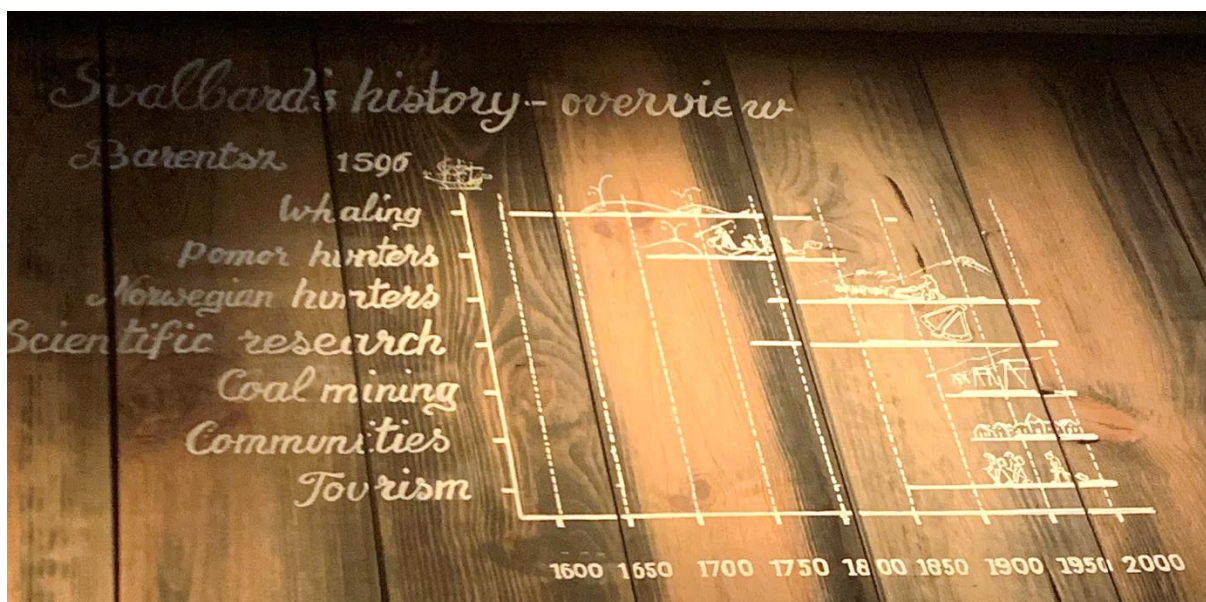 Svalbard's history - overview
Barentsz 1596
Whaling
Pomor hunters
Norwegian hunters
Scientific research
Coal mining
Communities
Tourism
1600 1650 1700 1750 1800 1850 1900 1950 2000